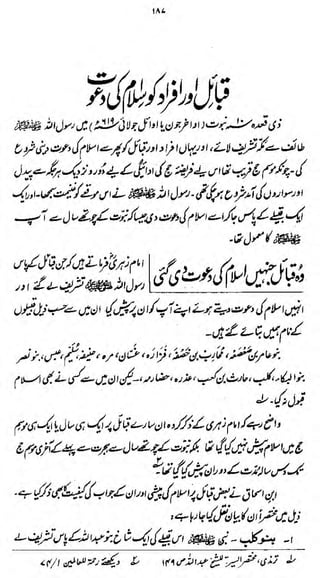 ۱۸۷
قبائل اور افراد کو اسلام کی دعوت
ذی قعدہ ۱۰ نبوت (اواخر جون یا اوائل جولائی ۶۱۹ء) میں رسول اللہ ﷺ
طائف سے مکہ تشریف لائے، اور یہاں افراد اور قبائل کو پھر سے اسلام کی دعوت دینی شروع
کی۔ چونکہ موسم حج قریب تھا اس لیے فریضۂ حج کی ادائیگی کے لیے دُور و نزدیک ہر جگہ سے پیدل
اور سواروں کی آمد شروع ہو چکی تھی۔ رسول اللہ ﷺ نے اس موقعے کو غنیمت سمجھا۔ اور ایک
ایک قبیلے کے پاس جا کر اسے اسلام کی دعوت دی جیسا کہ نبوت کے چوتھے سال سے آپ
ﷺ کا معمول تھا۔
وہ قبائل جنہیں اسلام کی دعوت دی گئی
امام زہریؒ فرماتے ہیں کہ جن قبائل کے پاس
رسول اللہ ﷺ تشریف لے گئے اور
انہیں اسلام کی دعوت دیتے ہوئے اپنے آپ کو ان پر پیش کیا ان میں سے حسب ذیل قبیلوں
کے نام ہمیں بتائے گئے ہیں۔
بنو عامر بن صعصعہ، محارب بن خصفہ، فزارہ، غسان، مرہ، حنیفہ، سُلَیم، عبس، بنو نصر
بنو البکاء، کلب، حارث بن کعب، عذرہ، حضارمہ،۔۔۔ لیکن ان میں سے کسی نے بھی اسلام
قبول نہ کیا۔ ۱؎
واضح رہے کہ امام زہری کے ذکر کردہ ان سارے قبائل پر ایک ہی سال یا ایک ہی موسم
حج میں اسلام پیش نہیں کیا گیا تھا بلکہ نبوت کے چوتھے سال سے ہجرت سے پہلے کے آخری موسم حج
تک دس سالہ مدت کے دوران پیش کیا گیا تھا۔ ۲؎
ابن اسحاق نے بعض قبائل پر اسلام کی پیشی اور ان کے جواب کی کیفیت بھی ذکر کیا ہے۔
ذیل میں مختصراً ان کا بیان نقل کیا جا رہا ہے :
۱۔ بنو کلب۔ نبی ﷺ اس قبیلے کی ایک شاخ بنو عبداللہ کے پاس تشریف لے
۱؎ ترمذی، مختصر السیرۃ للشیخ عبداللہ ص ۱۴۹ ۲؎ دیکھئے رحمۃ للعالمین ۱/۷۴